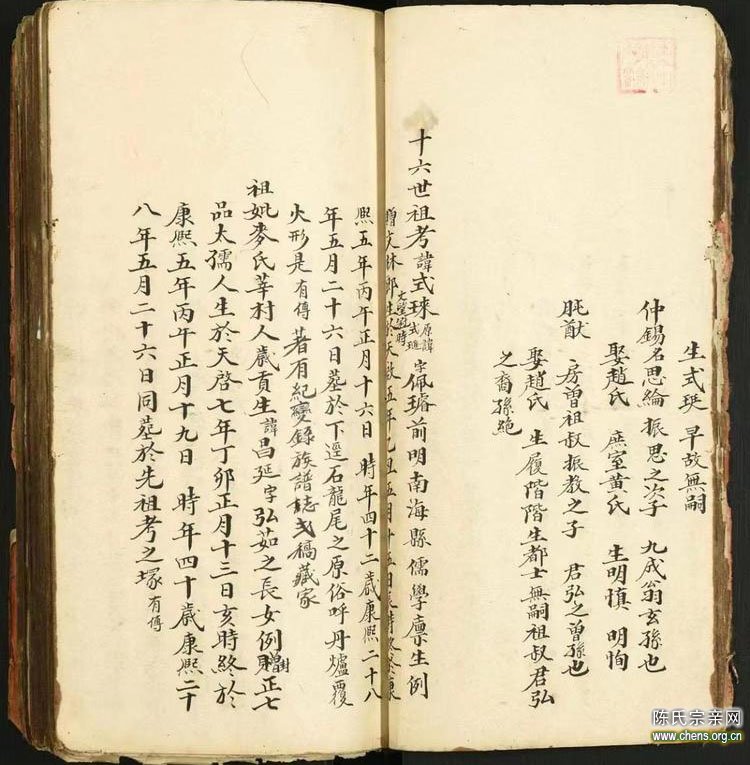 生式珱 早故無嗣
仲錫名思綸振思之次子 九成翁玄孫也
娶趙氏 庶室黃氏 生明慎 明恂
毗猷 房曾祖叔振教之子 君弘之曾孫也
娶趙氏 生履階階生都士無嗣祖叔君弘
之裔孫絶
十六世祖考諱式琜原諱式 字佩璿前明南海縣儒學廩生例
贈文林郎生於天啟五年乙丑五月十五日 時終於康
熙五年丙午正月十六日 時年四十二歲康熙二十八
年五月二十六日墓於下逕石龍尾之原俗呼丹爐覆
火形是有傳 著有紀變錄族譜誌 稿藏家
祖妣麥氏莘村人歲貢生諱昌延字弘茹之長女例贈封正七
品太孺人生於天啓七年丁卯正月十三日亥時終於
康熙五年丙午正月十九日 時年四十歲康熙二十
八年五月二十六日同墓於先祖考之塚有傳
陈氏宗亲网
www.chens.org.cn